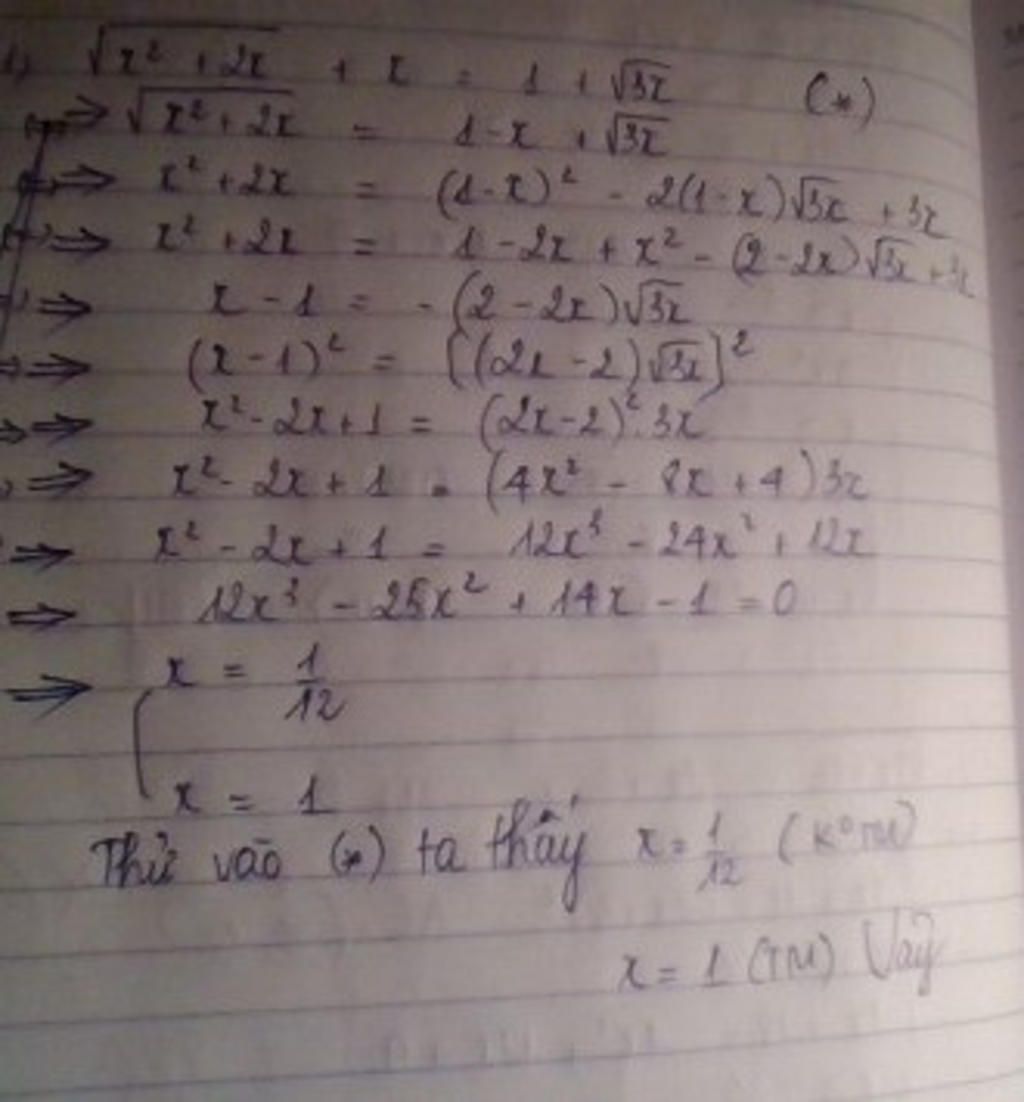 1, √(x² + 2x) + x = 1 + √3x (*)
⇒ √(x² + 2x) = 1 - x + √3x
⇒ x² + 2x = (1 - x)² - 2(1 - x)√3x + 3x
⇒ x² + 2x = 1 - 2x + x² - (2 - 2x)√3x + 3x
⇒ x - 1 = - (2 - 2x)√3x
⇒ (x - 1)² = [(2x - 2)√3x]²
⇒ x² - 2x + 1 = (2x - 2)². 3x
⇒ x² - 2x + 1 = (4x² - 8x + 4)3x
⇒ x² - 2x + 1 = 12x³ - 24x² + 12x
⇒ 12x³ - 25x² + 14x - 1 = 0
⇒ [ x = 1/12
x = 1
Thử vào (*) ta thấy x = 1/12 (K⁰TM)
x = 1 (TM) Vậy